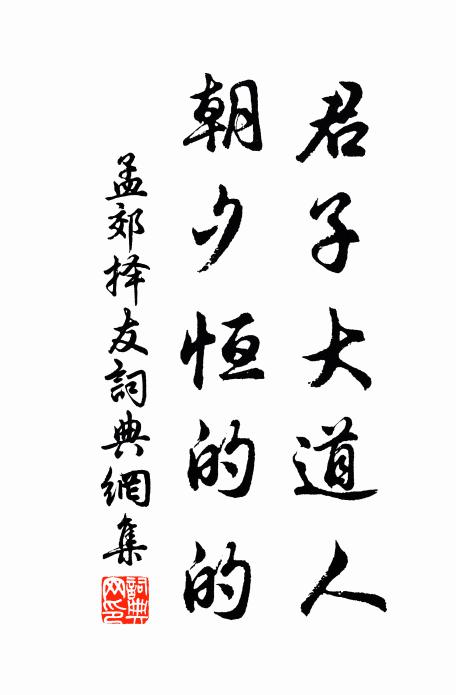 君子大道人
朝夕恒的的
孟郊择友詞典網集
詞典
网印